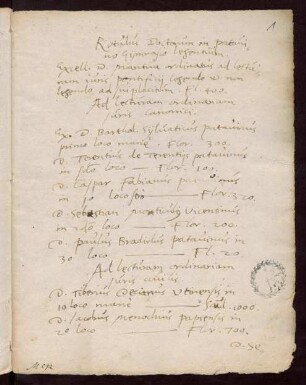 1
Rotulus Doctorum in patavi
no Gymnasio legentium.
Excell. D. Mantua ordinarius ad lectio
nem iuris pontificij legendo et non
legendo, ad suiplacitum. Fl. 800.
Ad lecturam ordinariam
iuris canonici.
Ex. D. Barthol. Sylvaticus patavinus
primo loco mane. Flor. 300.
D. Terentius de Terentijs patavinus
in sdo loco — Flor. 100.
D. Caspar Fabianus patavinus
in po loco — Flor. 320.
D. Sebastian Monticulus Vicentinus
in 2do loco — Flor. 200.
D. Paulus Bradiolus patavinus in
3o loco — Fl. 20.
Ad lecturam ordinariam
iuris civilis
D. Tiberius Decianus Utinensis in
1o loco mane — 1000.
D. Iacobus Menochius papiensis in
2o loco — Flor. 700.
D. Se.